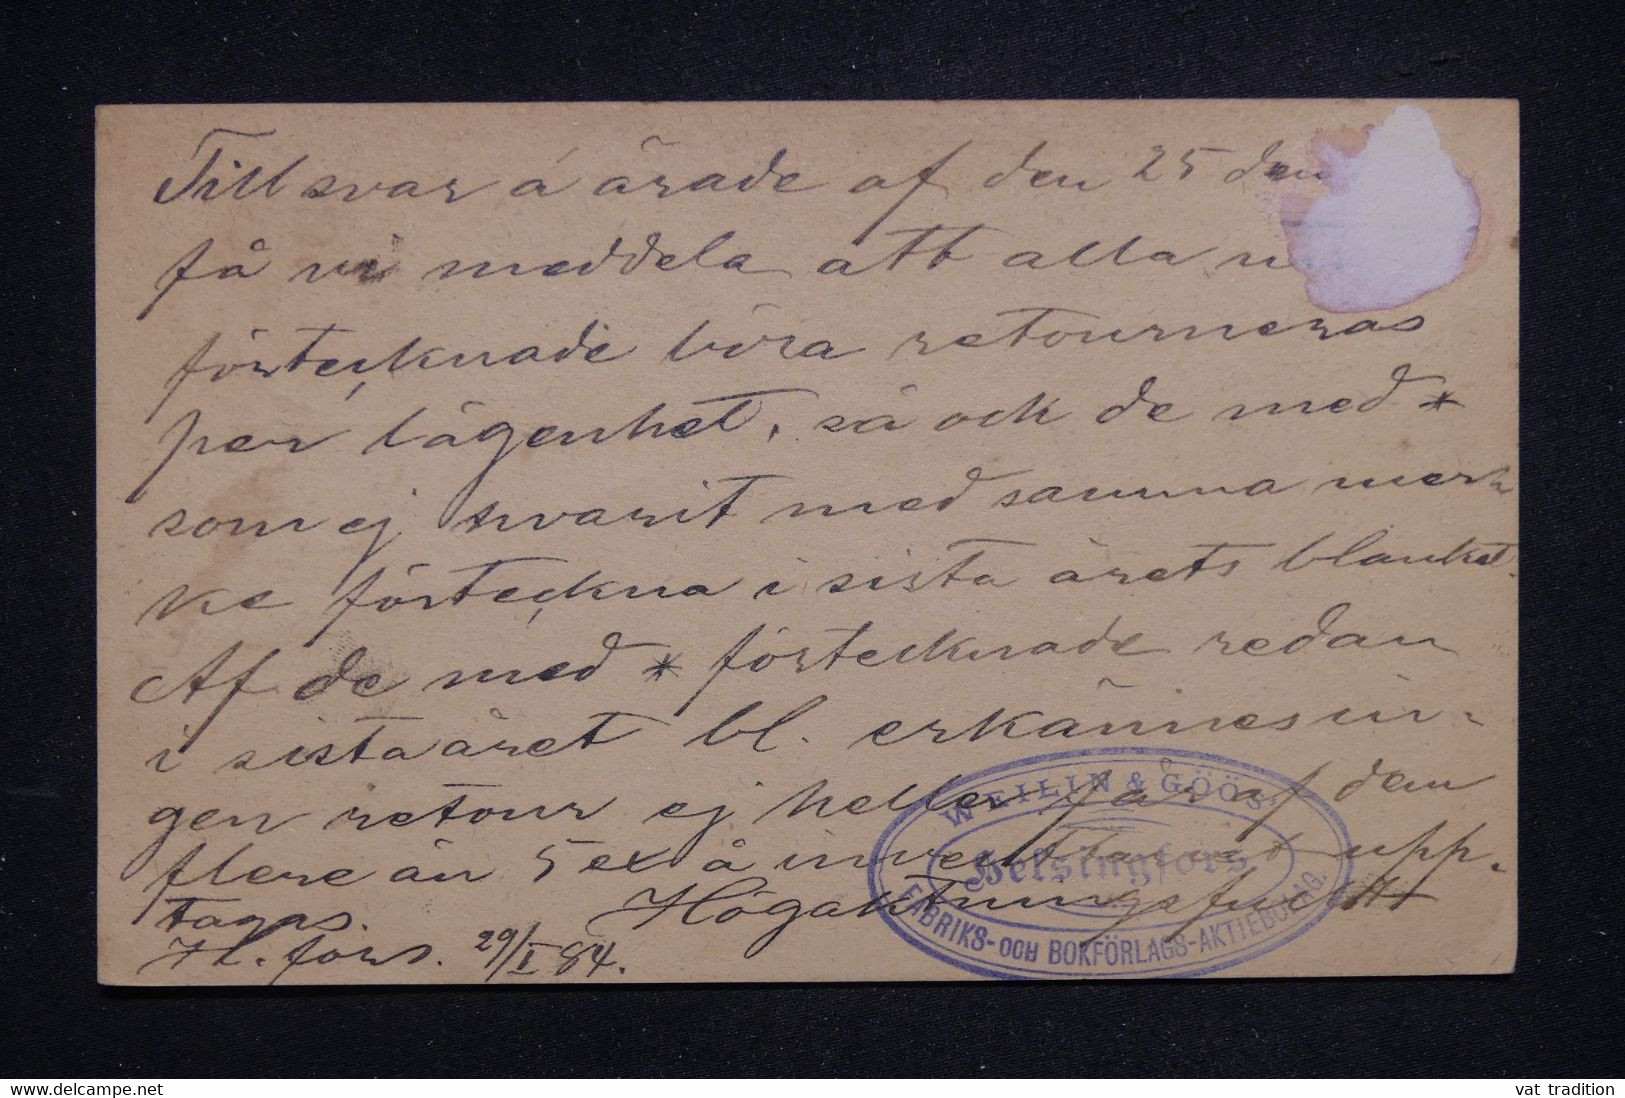 Till svar á ärade af den 25 den
få vi meddela att alla
förtecknade böra retourneras
per lägenhet, så ock de med *
som ej hvarit med samma mär
ke förteckna i sista årets blanket.
Af de med * förtecknade redan
i sista året bl. erkännes in-
gen retour ej heller får af dem
flere än 5 ex å inventariet upp-
tagas. Högaktningsfullt
H.fors. 29/I 84.
WEILIN & GÖÖS'
Helsingfors
FABRIKS- OCH BOKFÖRLAGS-AKTIEBOLAG.
delcampe.net
vat_tradition